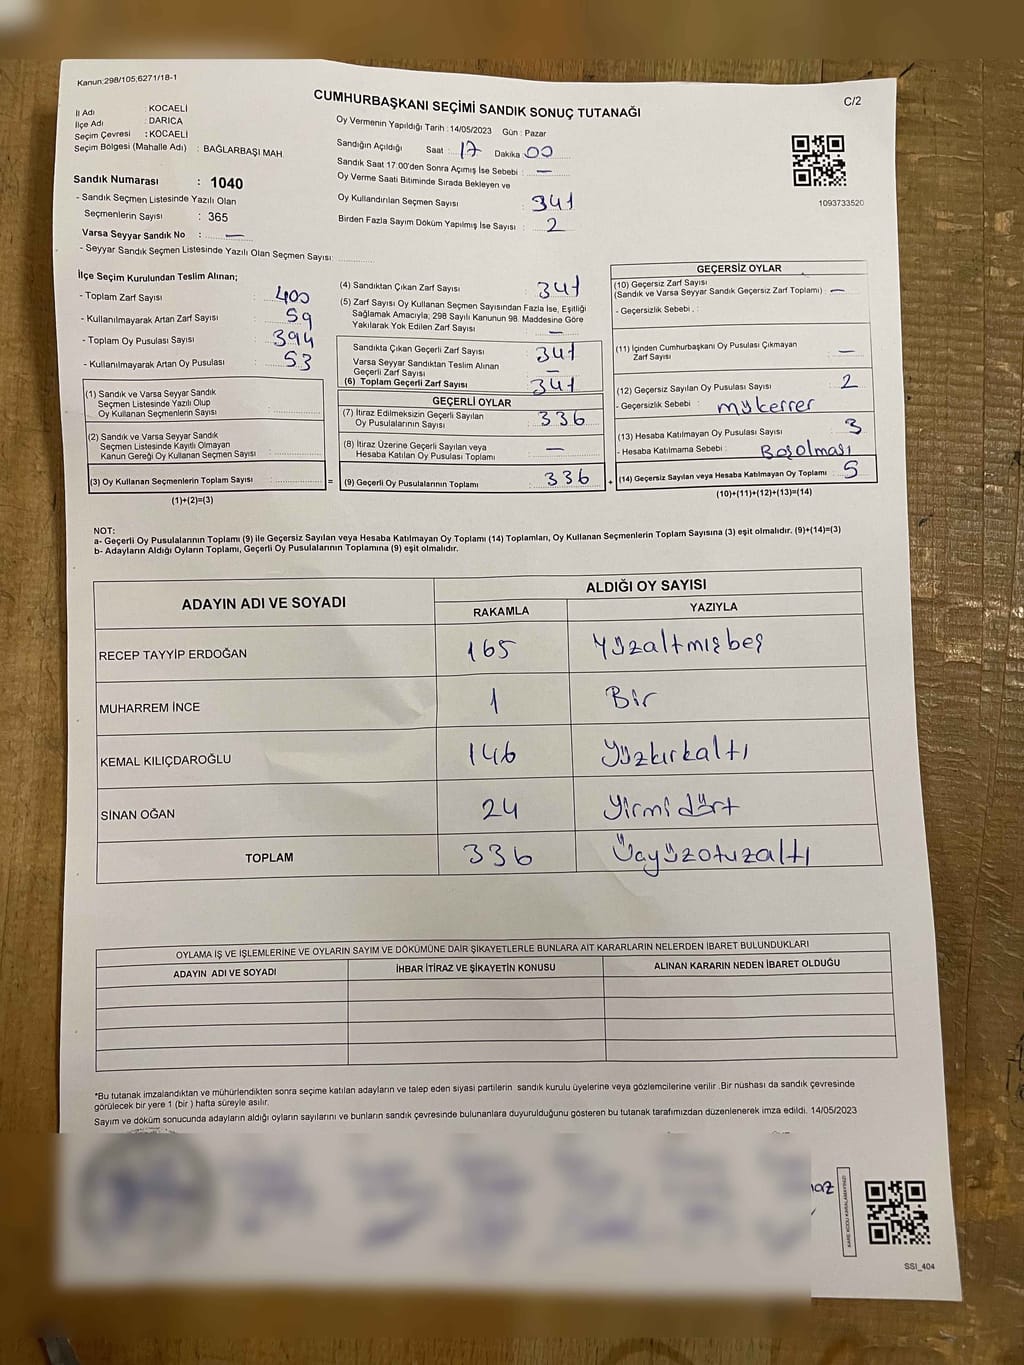 Kanun:298/105;6271/18-1
C/2
CUMHURBAŞKANI SEÇİMİ SANDIK SONUÇ TUTANAĞI
İl Adı : KOCAELİ
İlçe Adı : DARICA
Seçim Çevresi : KOCAELİ
Seçim Bölgesi (Mahalle Adı) : BAĞLARBAŞI MAH.
Sandık Numarası : 1040
- Sandık Seçmen Listesinde Yazılı Olan
Seçmenlerin Sayısı : 365
Varsa Seyyar Sandık No : —
- Seyyar Sandık Seçmen Listesinde Yazılı Olan Seçmen Sayısı:
Oy Vermenin Yapıldığı Tarih :14/05/2023 Gün : Pazar
Sandığın Açıldığı Saat : 17 Dakika : 00
Sandık Saat 17:00'den Sonra Açımış İse Sebebi : —
Oy Verme Saati Bitiminde Sırada Bekleyen ve
Oy Kullandırılan Seçmen Sayısı : 341
Birden Fazla Sayım Döküm Yapılmış İse Sayısı : 2
1093733520
İlçe Seçim Kurulundan Teslim Alınan;
- Toplam Zarf Sayısı : 400
- Kullanılmayarak Artan Zarf Sayısı : 59
- Toplam Oy Pusulası Sayısı : 394
- Kullanılmayarak Artan Oy Pusulası : 53
(1) Sandık ve Varsa Seyyar Sandık
Seçmen Listesinde Yazılı Olup
Oy Kullanan Seçmenlerin Sayısı :
(2) Sandık ve Varsa Seyyar Sandık
Seçmen Listesinde Kayıtlı Olmayan
Kanun Gereği Oy Kullanan Seçmen Sayısı :
(3) Oy Kullanan Seçmenlerin Toplam Sayısı :
(1)+(2)=(3)
(4) Sandıktan Çıkan Zarf Sayısı : 341
(5) Zarf Sayısı Oy Kullanan Seçmen Sayısından Fazla İse, Eşitliği
Sağlamak Amacıyla; 298 Sayılı Kanunun 98. Maddesine Göre
Yakılarak Yok Edilen Zarf Sayısı : —
Sandıkta Çıkan Geçerli Zarf Sayısı : 341
Varsa Seyyar Sandıktan Teslim Alınan
Geçerli Zarf Sayısı : —
(6) Toplam Geçerli Zarf Sayısı : 341
GEÇERLİ OYLAR
(7) İtiraz Edilmeksizin Geçerli Sayılan
Oy Pusulalarının Sayısı : 336
(8) İtiraz Üzerine Geçerli Sayılan veya
Hesaba Katılan Oy Pusulası Toplamı : —
= (9) Geçerli Oy Pusulalarının Toplamı : 336 +
GEÇERSİZ OYLAR
(10) Geçersiz Zarf Sayısı
(Sandık ve Varsa Seyyar Sandık Geçersiz Zarf Toplamı) : —
- Geçersizlik Sebebi :
(11) İçinden Cumhurbaşkanı Oy Pusulası Çıkmayan
Zarf Sayısı : —
(12) Geçersiz Sayılan Oy Pusulası Sayısı : 2
- Geçersizlik Sebebi : mükerrer
(13) Hesaba Katılmayan Oy Pusulası Sayısı : 3
- Hesaba Katılmama Sebebi : Boş olması
(14) Geçersiz Sayılan veya Hesaba Katılmayan Oy Toplamı : 5
(10)+(11)+(12)+(13)=(14)
NOT:
a- Geçerli Oy Pusulalarının Toplamı (9) ile Geçersiz Sayılan veya Hesaba Katılmayan Oy Toplamı (14) Toplamları, Oy Kullanan Seçmenlerin Toplam Sayısına (3) eşit olmalıdır. (9)+(14)=(3)
b- Adayların Aldığı Oyların Toplamı, Geçerli Oy Pusulalarının Toplamına (9) eşit olmalıdır.
ADAYIN ADI VE SOYADI ALDIĞI OY SAYISI
RAKAMLA YAZIYLA
RECEP TAYYİP ERDOĞAN 165 Yüzaltmışbeş
MUHARREM İNCE 1 Bir
KEMAL KILIÇDAROĞLU 146 Yüzkırkaltı
SİNAN OĞAN 24 Yirmi dört
TOPLAM 336 Üçyüzotuzaltı
OYLAMA İŞ VE İŞLEMLERİNE VE OYLARIN SAYIM VE DÖKÜMÜNE DAİR ŞİKAYETLERLE BUNLARA AİT KARARLARIN NELERDEN İBARET BULUNDUKLARI
ADAYIN ADI VE SOYADI İHBAR İTİRAZ VE ŞİKAYETİN KONUSU ALINAN KARARIN NEDEN İBARET OLDUĞU
*Bu tutanak imzalandıktan ve mühürlendikten sonra seçime katılan adayların ve talep eden siyasi partilerin sandık kurulu üyelerine veya gözlemcilerine verilir .Bir nüshası da sandık çevresinde
görülecek bir yere 1 (bir ) hafta süreyle asılır.
Sayım ve döküm sonucunda adayların aldığı oyların sayılarını ve bunların sandık çevresinde bulunanlara duyurulduğunu gösteren bu tutanak tarafımızdan düzenlenerek imza edildi. 14/05/2023
KARE KODU KARALAMAYINIZ!
SSİ_404